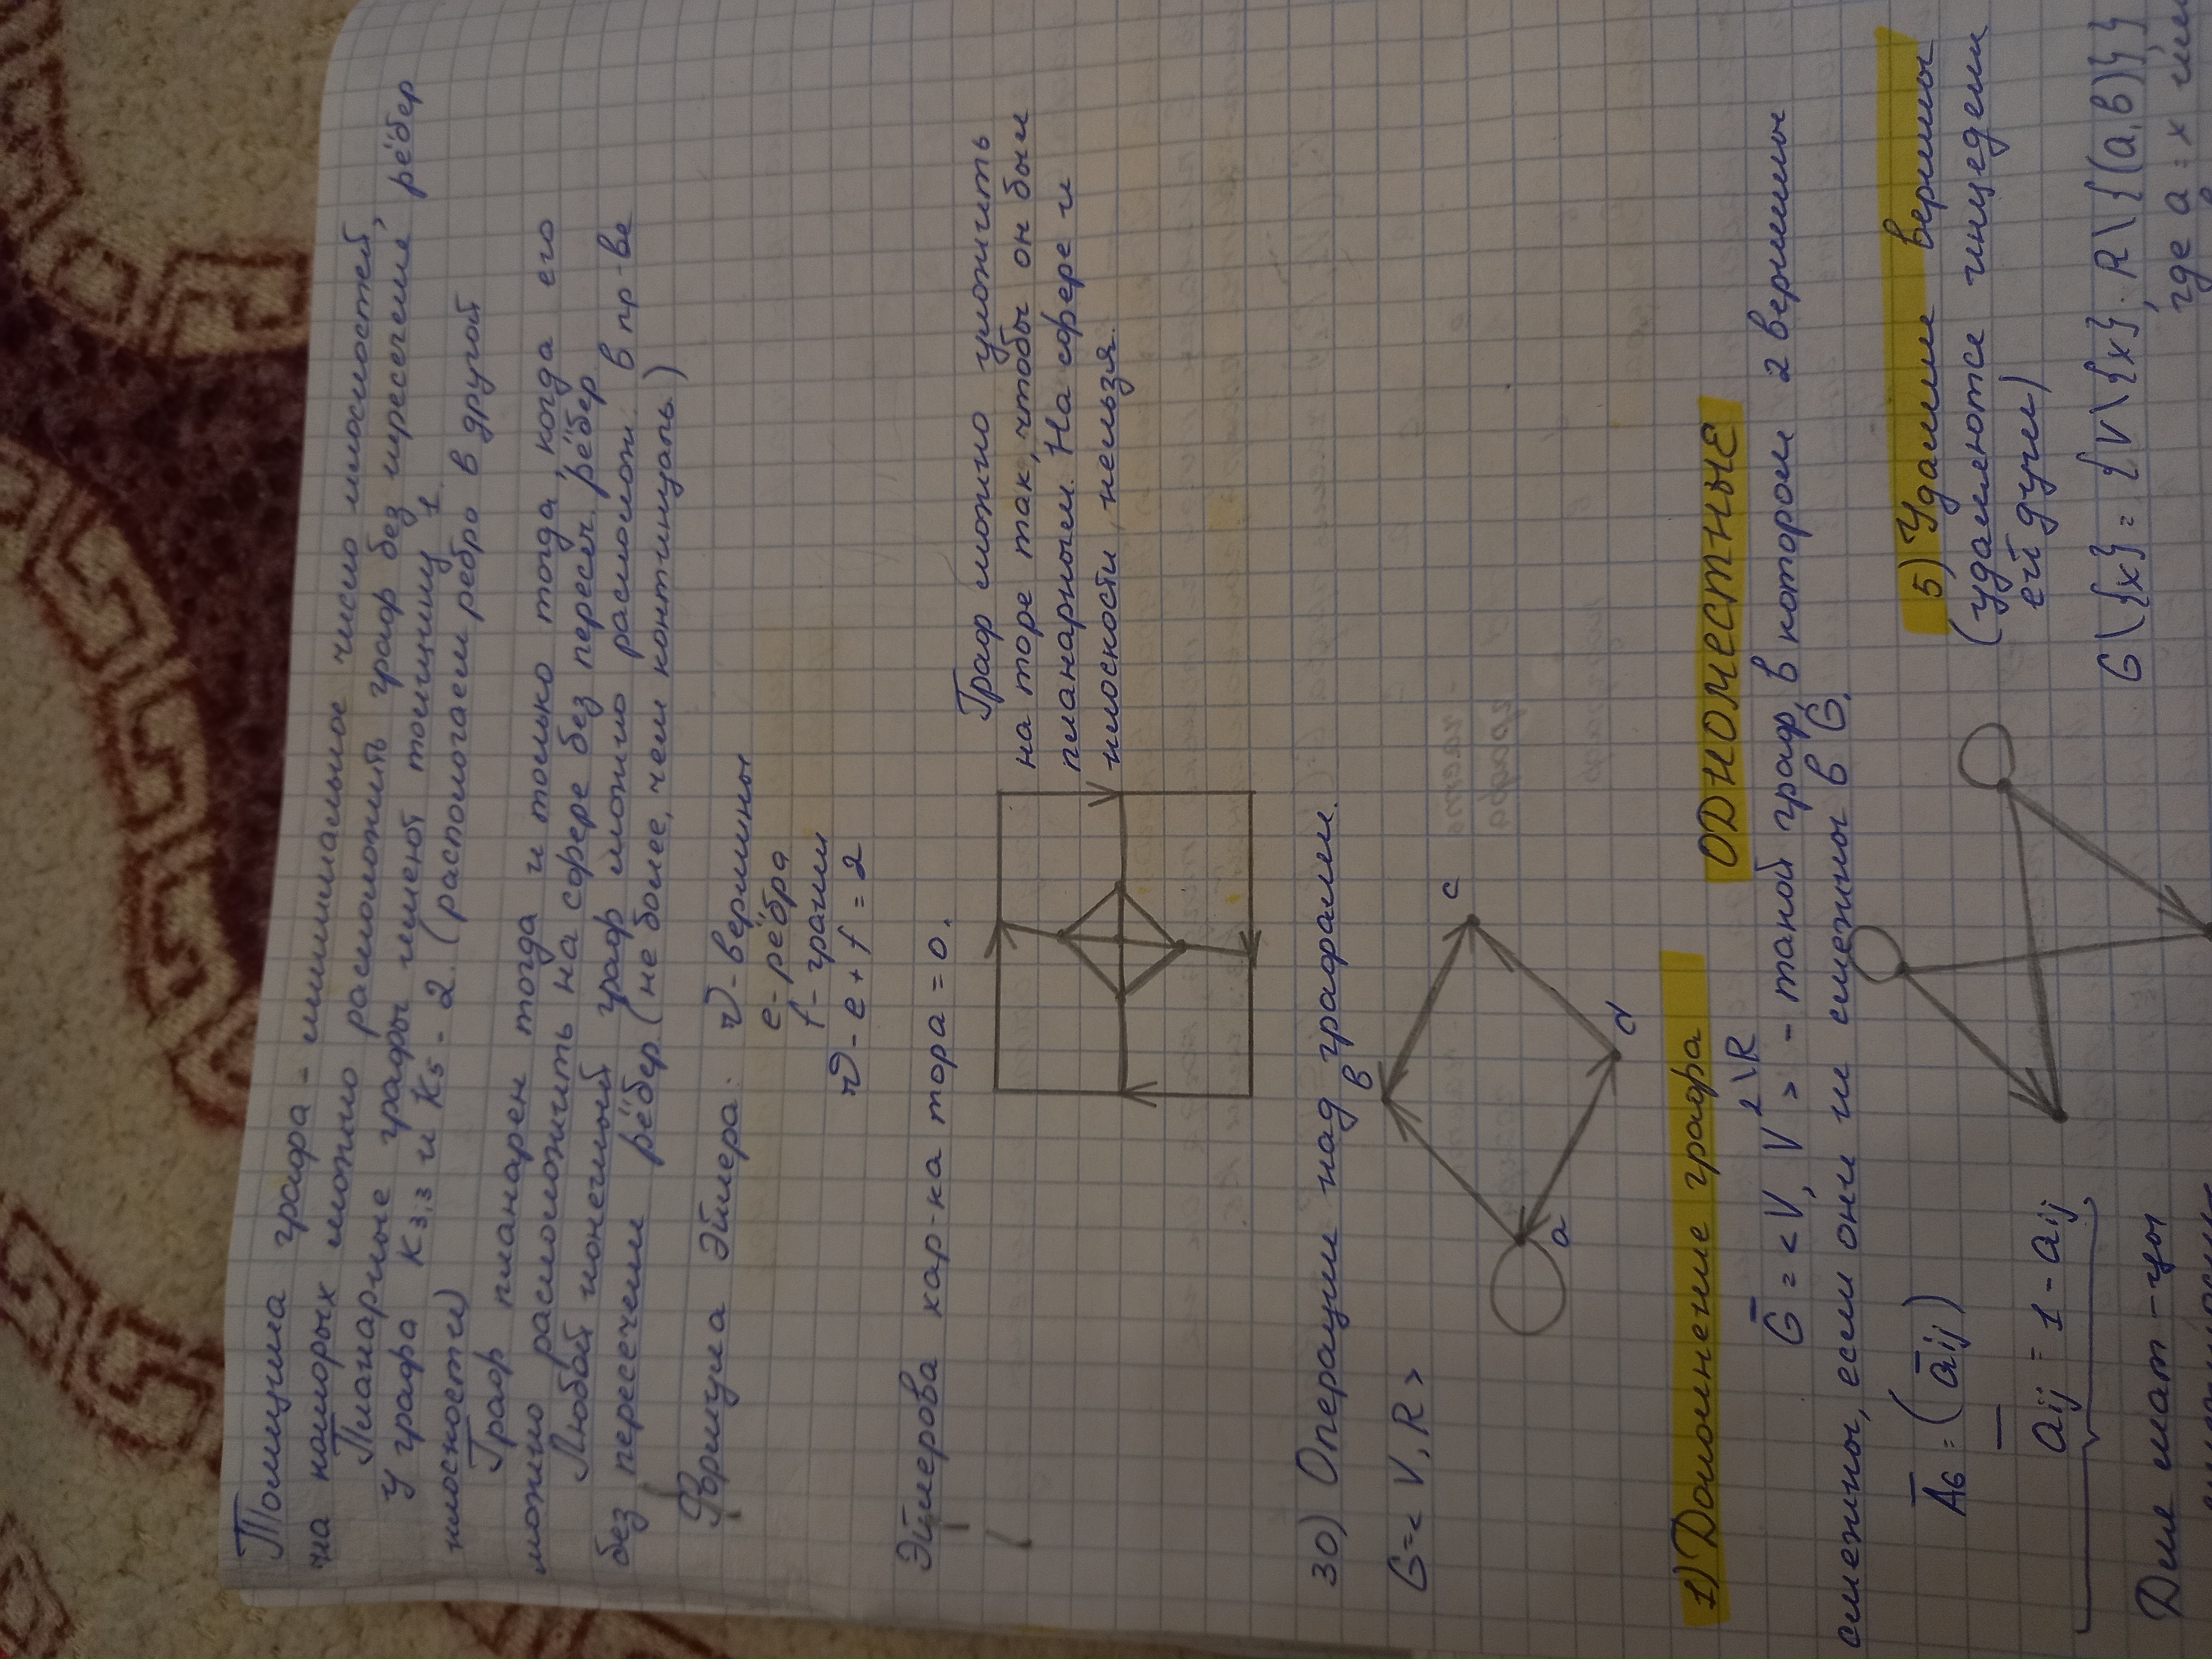 Толщина графа - минимальное число плоскостей,
на которых можно расположить граф без пересечение рёбер
Планарные графы имеют толщину 1.
У графа K3,3 и K5 - 2. (распологаем ребро в другой
плоскости)
Граф планарен тогда и только тогда, когда его
можно расположить на сфере без пересеч. рёбер
Любой конечный граф можно располож. в пр-ве
без пересечений рёбер. (не более, чем континуаль)
Формула Эйлера: v - вершины
e - рёбра
f - грани
v - e + f = 2
Эйлерова хар-ка тора = 0.
Граф можно уложить
на торе так, чтобы он был
планарным. На сфере и
плоскости нельзя.
30) Операции над графами.
G=< V, R >
в
c
a
d
1) Дополнение графа
ОДНОМЕСТНЫЕ
G̅ = <V, V²\R> - такой граф, в котором 2 вершины
смежны, если они не смежны в G.
A̅G = (a̅ij)
a̅ij = 1 - aij
Для мат-цы
5) Удалении вершины
(удаляются
ей дуги)
G\{x} = {V\{x}; R\{(a,в)},}
где a = x или